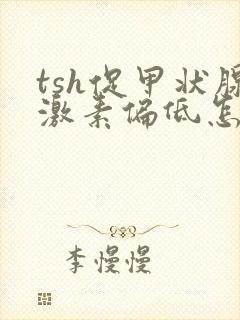 tsh促甲状腺
激素偏低怎
李慢慢